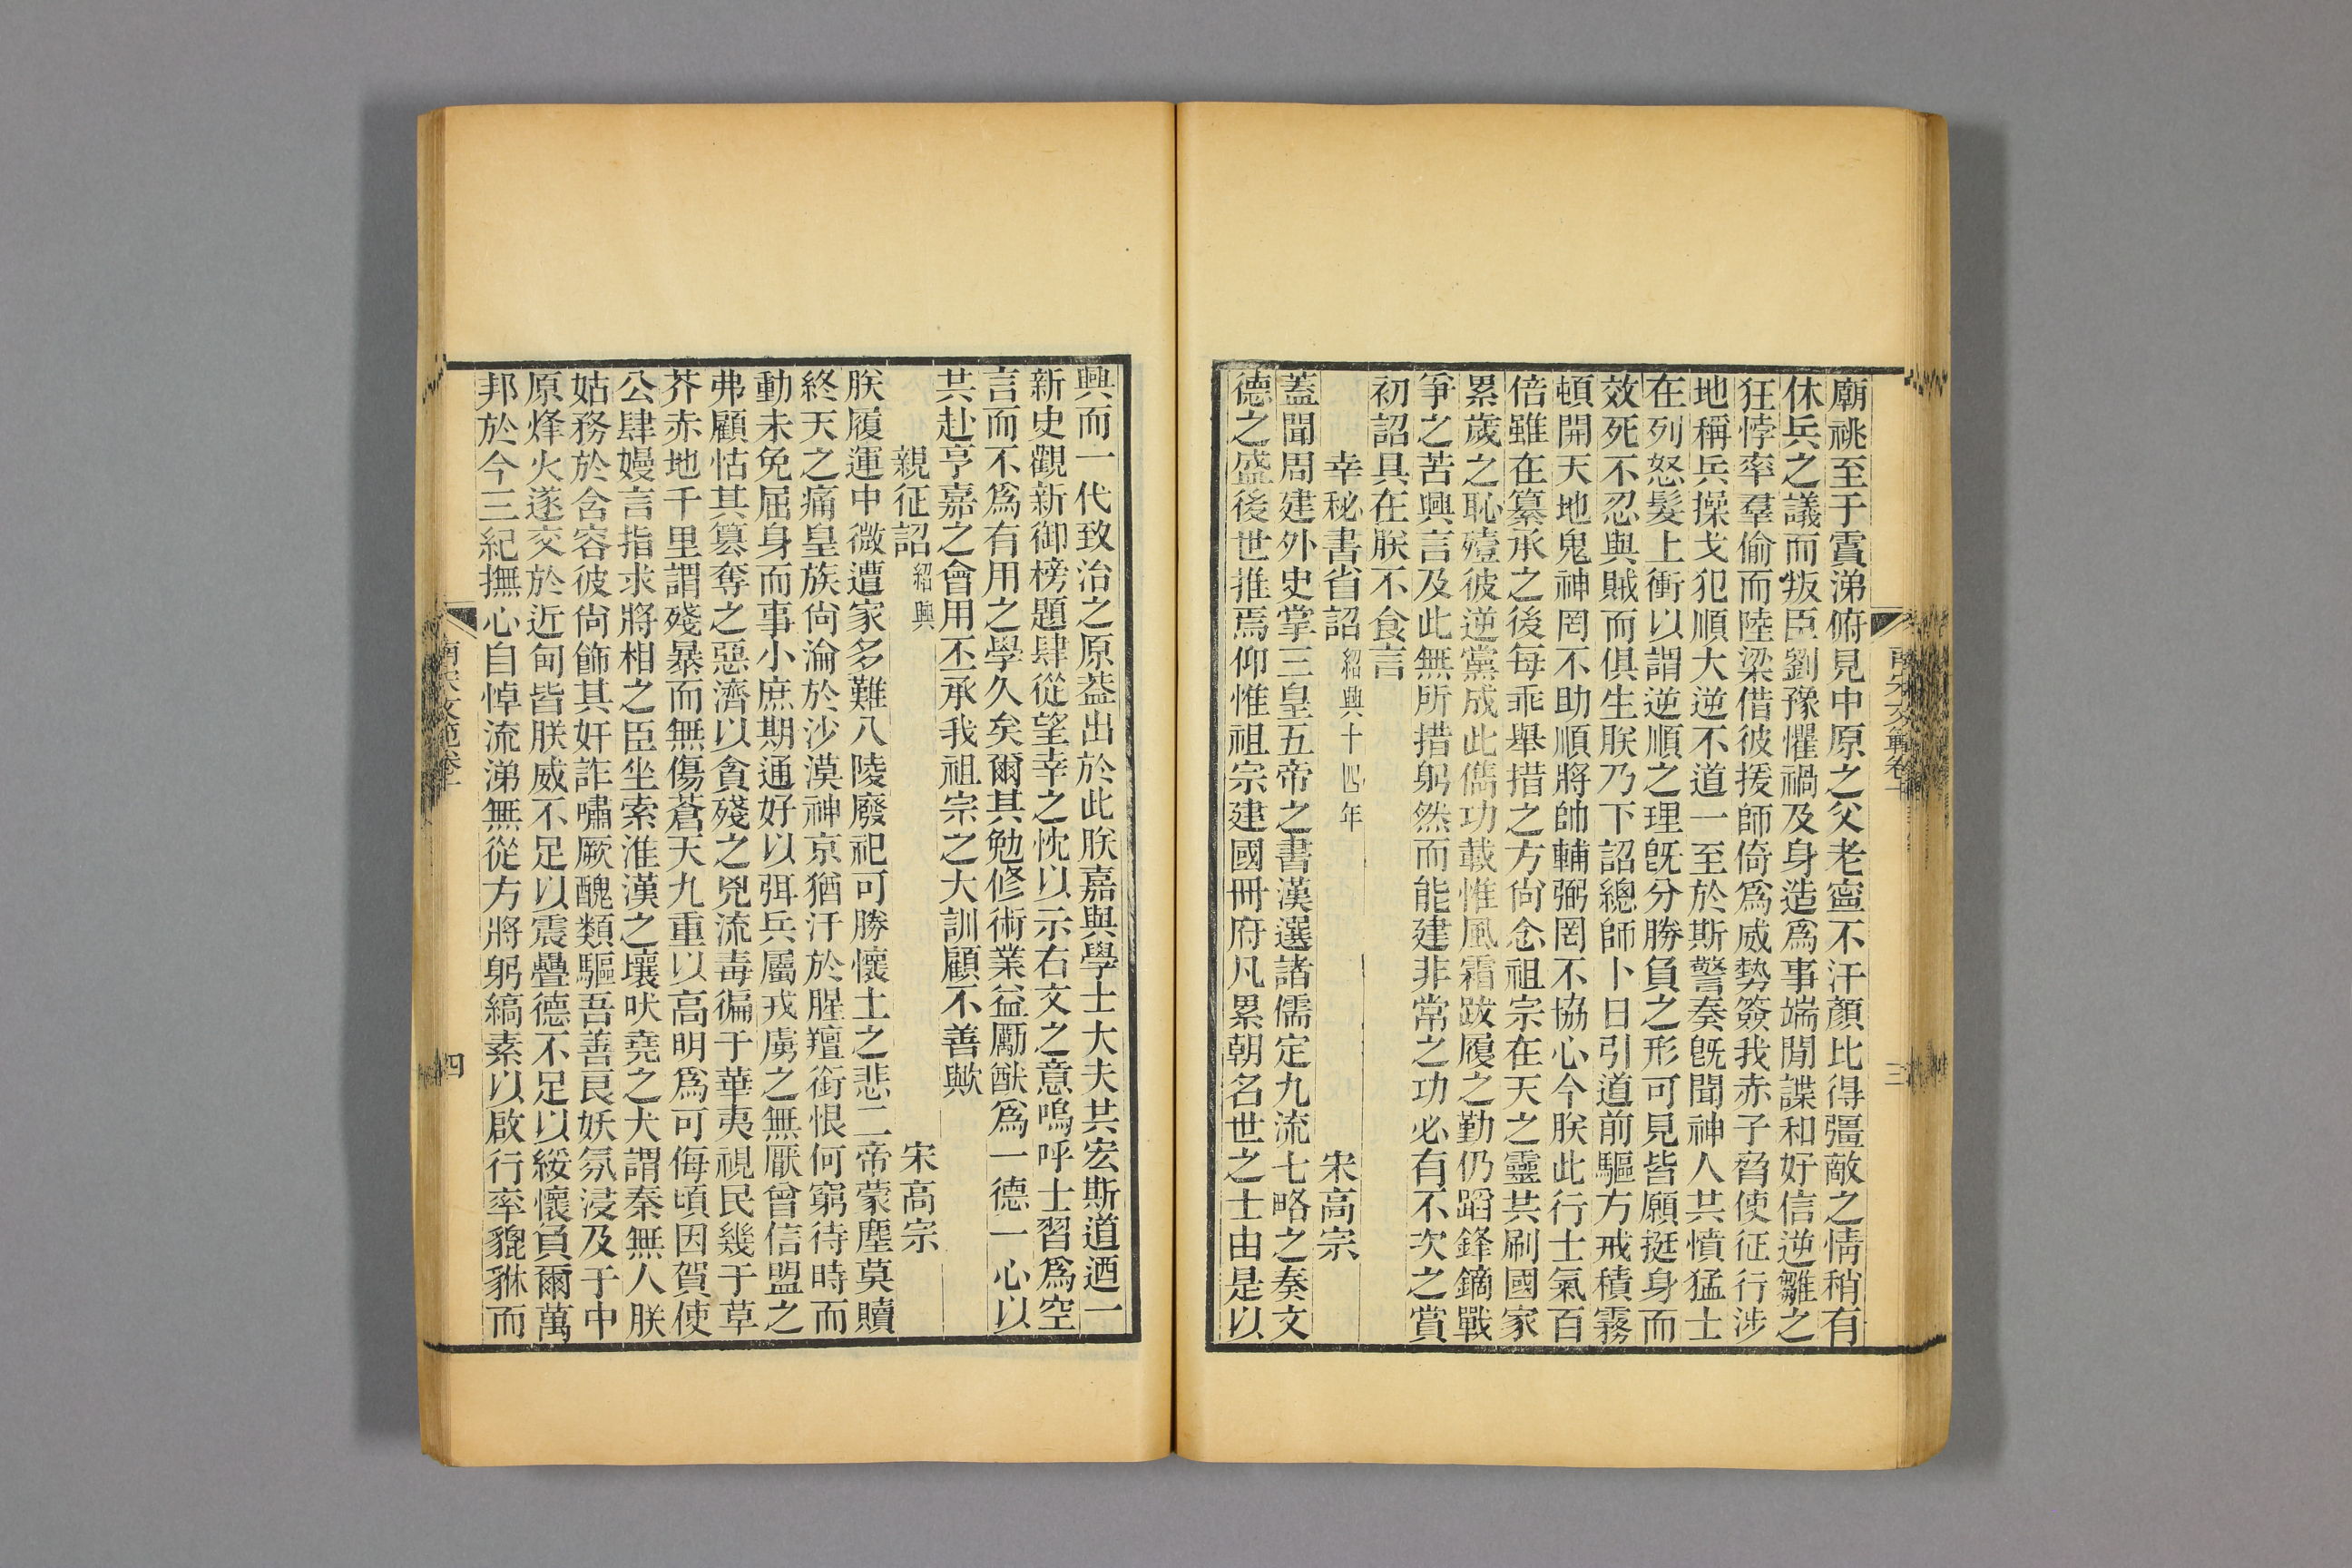 廟祧至于霣涕俯見中原之父老寧不汗顏比得彊敵之情稍有
休兵之議而叛臣劉豫懼禍及身造爲事端閒諜和好信逆雛之
狂悖率羣偷而陸梁借彼援師倚爲威勢簽我赤子脅使征行涉
地稱兵操戈犯順大逆不道一至於斯警奏旣聞神人共憤猛士
在列怒髮上衝以謂逆順之理旣分勝負之形可見皆願挺身而
效死不忍與賊而俱生朕乃下詔總師卜日引道前驅方戒積霧
頓開天地鬼神罔不助順將帥輔弼罔不協心今朕此行士氣百
倍雖在纂承之後每乖舉措之方尙念祖宗在天之靈共刷國家
累歲之恥殪彼逆黨成此儁功載惟風霜跋履之勤仍蹈鋒鏑戰
爭之苦興言及此無所措躬然而能建非常之功必有不次之賞
初詔具在朕不食言
幸秘書省詔紹興十四年 宋高宗
蓋聞周建外史掌三皇五帝之書漢選諸儒定九流七略之奏文
德之盛後世推焉仰惟祖宗建國冊府凡累朝名世之士由是以
南宋文範卷十
三
興而一代致治之原葢出於此朕嘉與學士大夫共宏斯道迺一
新史觀新御榜題肆從望幸之忱以示右文之意嗚呼士習爲空
言而不爲有用之學久矣爾其勉修術業益勵猷爲一德一心以
共赴亨嘉之會用丕承我祖宗之大訓顧不善歟
親征詔紹興 宋高宗
朕履運中微遭家多難八陵廢祀可勝懷土之悲二帝蒙塵莫贖
終天之痛皇族尙淪於沙漠神京猶汙於腥羶銜恨何窮待時而
動未免屈身而事小庶期通好以弭兵屬戎虜之無厭曾信盟之
弗顧怙其篡奪之惡濟以貪殘之兇流毒徧于華夷視民幾于草
芥赤地千里謂殘暴而無傷蒼天九重以高明爲可侮頃因賀使
公肆嫚言指求將相之臣坐索淮漢之壤吠堯之犬謂秦無人朕
姑務於含容彼尙飾其奸詐嘯厥醜類驅吾善良妖氛浸及于中
原烽火遂交於近甸皆朕威不足以震疊德不足以綏懷負爾萬
邦於今三紀撫心自悼流涕無從方將躬縞素以啟行率貔貅而
南宋文範卷十
四